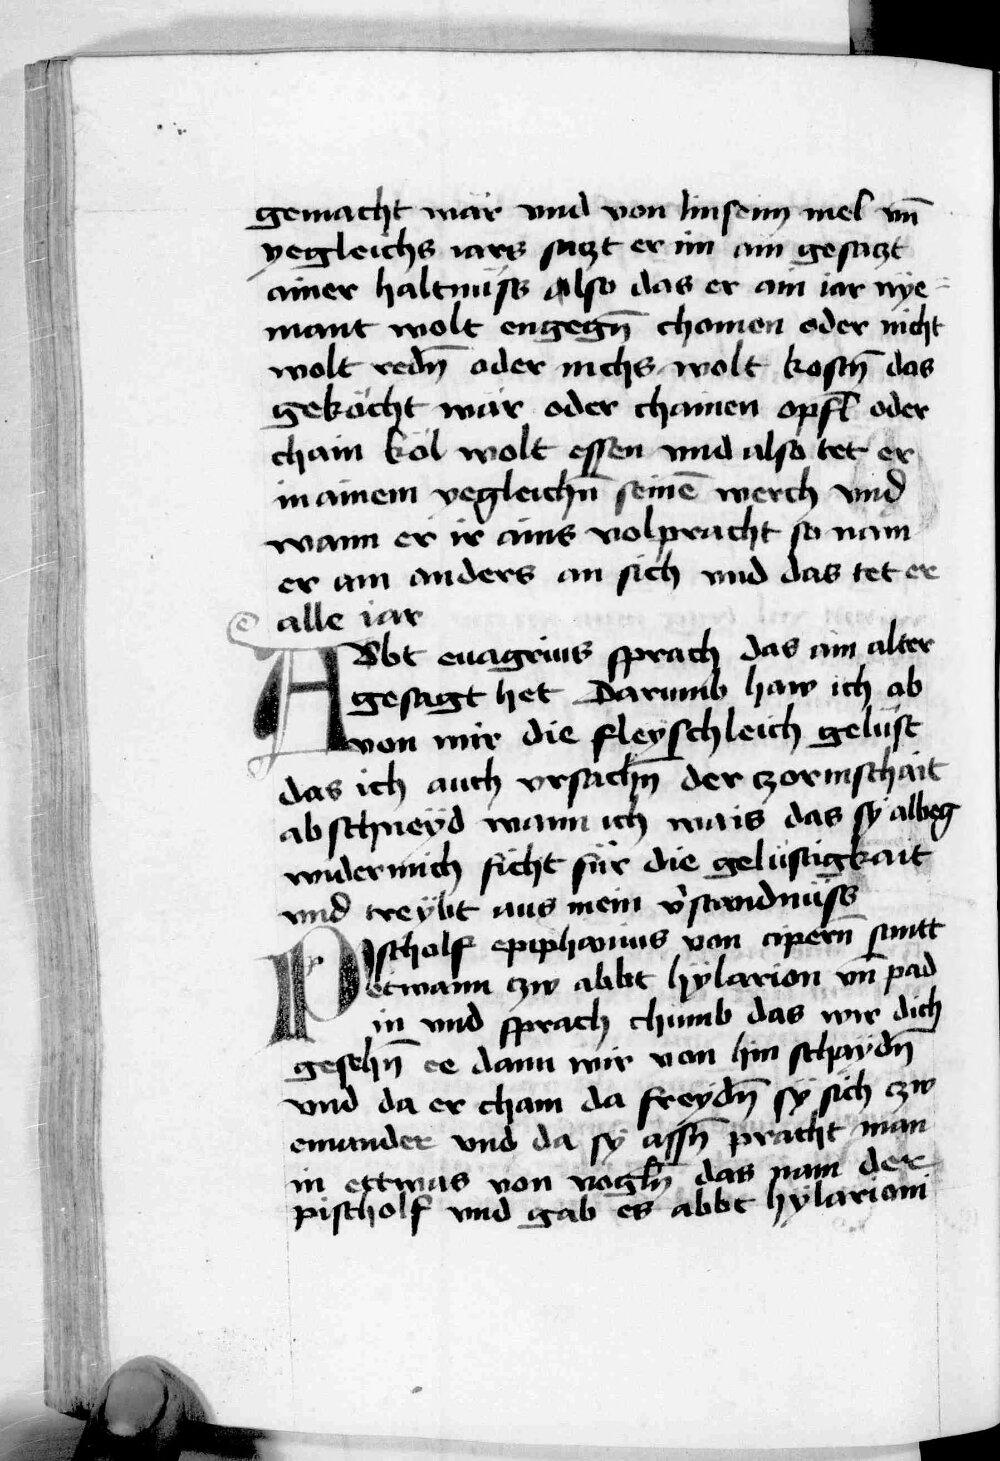 gemacht wär vnd von linseinn mel vn̄
yegleichs iars saczt er im ain gesaczt
ainer haltnüss Also das er ain iar nye-
mant wolt engegn̄ chomen oder nicht
wolt redn̄ oder nichs wolt kostn̄ das
geköcht wär oder chainen opfl̄ oder
chain köl wolt essen vnd also tet er
in ainem yegleichn̄ seinē werch vnd
wann er ir ains volpracht so nam
er ain anders an sich vnd das tet er
alle iar
Abbt euagrius sprach das ain alter
gesagt het Darumb haw ich ab
von mir die fleyschleich gelüst
das ich auch vrsachn̄ der czornischait
abschneyd wann ich wais das sy albeg
wider mich ficht für die gelüstigkait
vnd treybt aus mein v̉standnüss
Pischolf epiphanius von cipern̄ santt
etwann czw abbt hylarion vn̄ pad
in vnd sprach chumb das wir dich
gesehn̄ ee dann wir von hin schaydn̄
vnd da er cham da freydn̄ sy sich czw
einander vnd da sy assn̄ pracht man
in ettwas von vogln̄ das nam der
pischolf vnd gab es abbt hylarioni